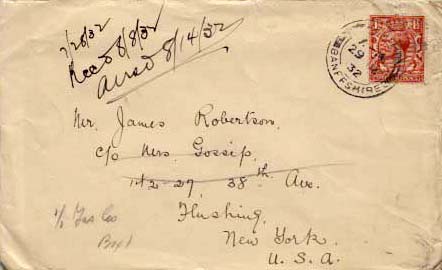 7/28/32
Recd 8/8/32
Ansd 8/14/32
BANFFSHIRE
29
32
Mr. James Robertson,
c/o Mrs. Gossip,
142-27, 38th Ave.
Flushing,
New York.
U. S. A.